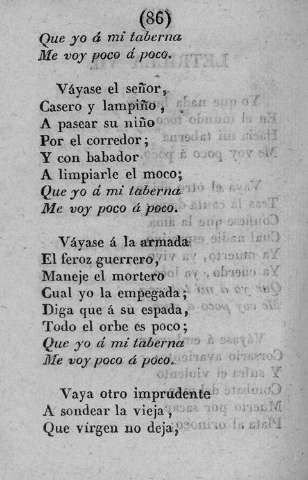 (86)
Que yo á mi taberna
Me voy poco á poco.
Váyase el señor,
Casero y lampiño,
A pasear su niño
Por el corredor;
Y con babador
A limpiarle el moco;
Que yo á mi taberna
Me voy poco á poco.
Váyase á la armada
El feroz guerrero,
Maneje el mortero
Cual yo la empegada;
Diga que á su espada,
Todo el orbe es poco;
Que yo á mi taberna
Me voy poco á poco.
Vaya otro imprudente
A sondear la vieja,
Que vírgen no deja,